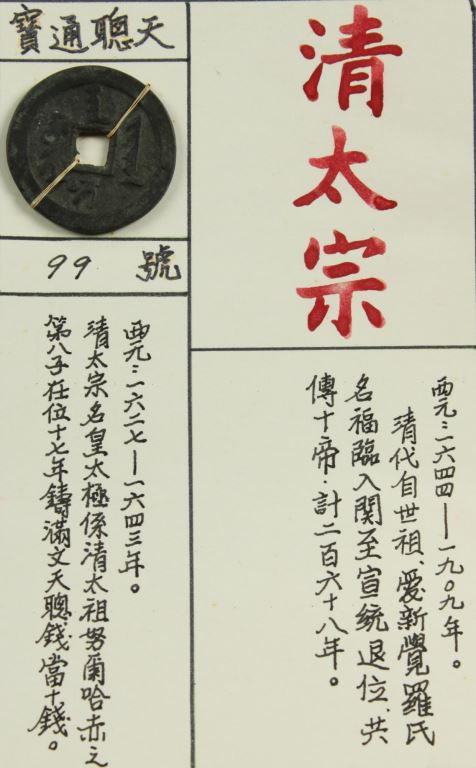 清太宗
西元：一六四四—一九〇九年。
清代自世祖、愛新覺羅氏
名福臨入關至宣統退位、共
傳十帝．計二百六十八年。
天聰通寶
99 號
西元：一六二七—一六四三年。
清太宗名皇太極係清太祖努爾哈赤之
第八子在位十七年鑄滿文天聰錢當十錢。